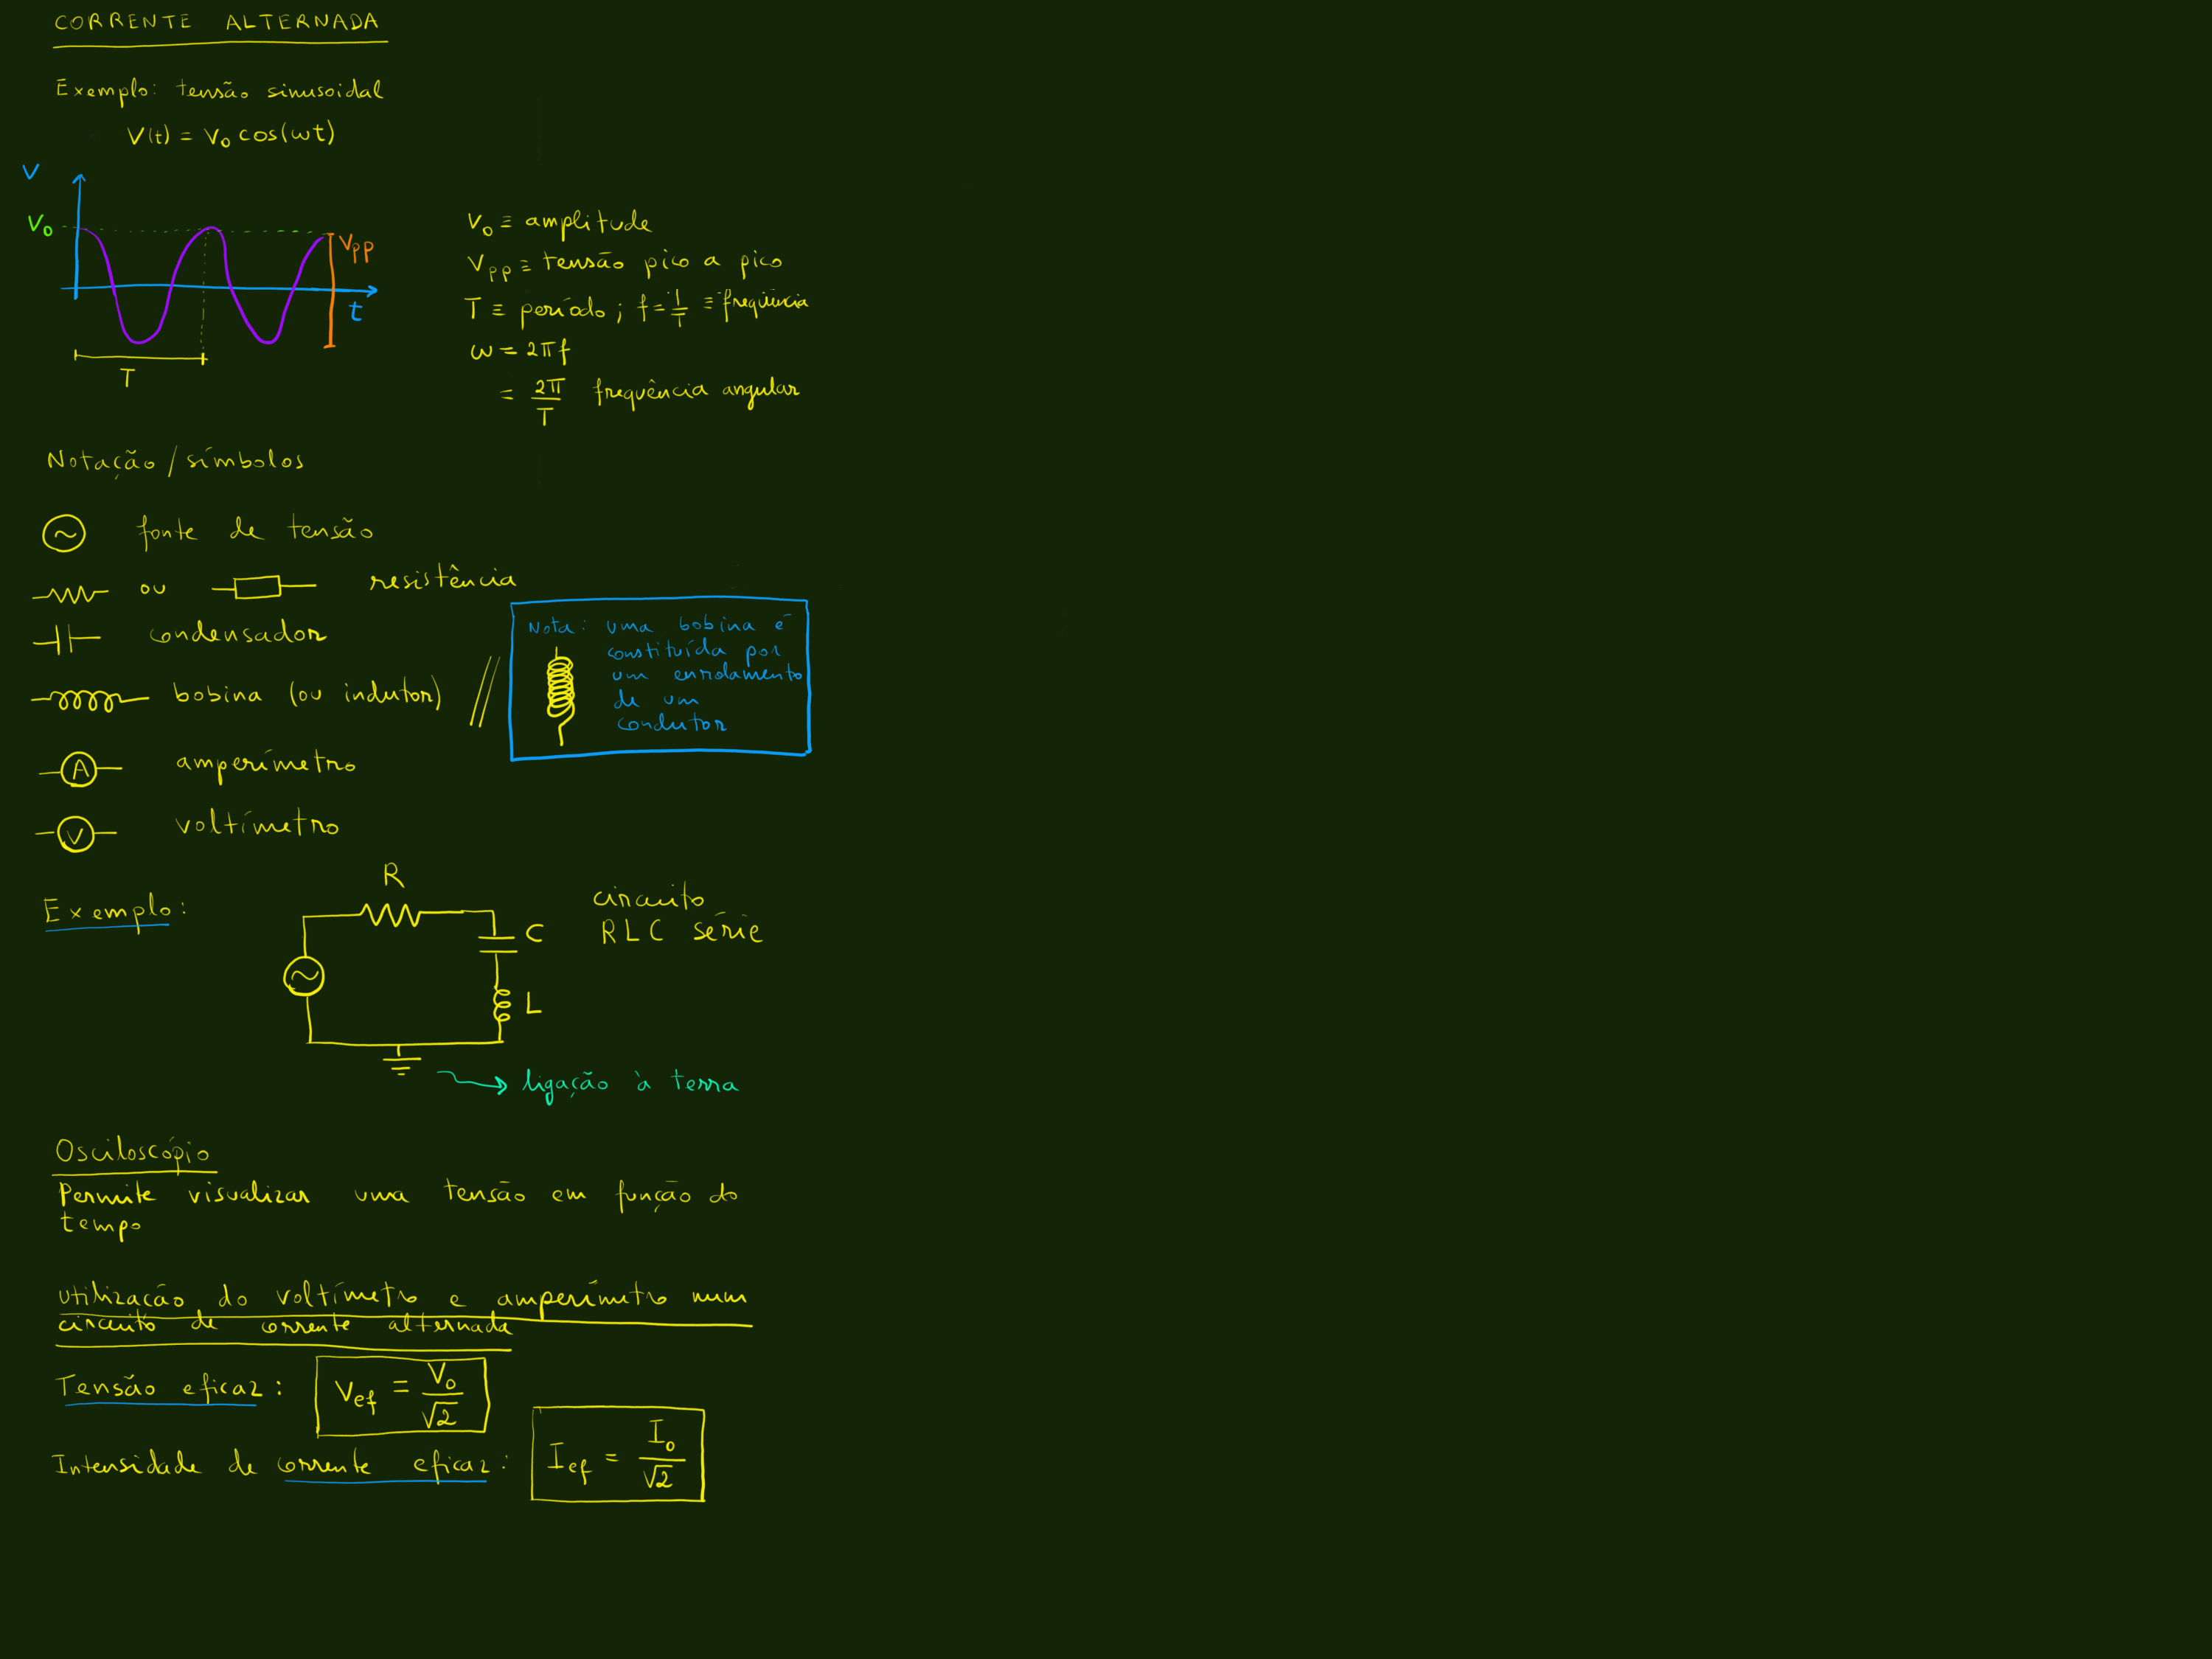 CORRENTE ALTERNADA
Exemplo: tensão sinusoidal
V(t) = V₀ cos(ωt)
V
V₀
Vpp
t
T
V₀ ≡ amplitude
Vpp ≡ tensão pico a pico
T ≡ período ; f = 1/T ≡ frequência
ω = 2πf
= 2π/T frequência angular
Notação / símbolos
~ fonte de tensão
ou resistência
condensador
bobina (ou indutor)
Nota: uma bobina é
constituída por
um enrolamento
de um
condutor
A amperímetro
V voltímetro
Exemplo:
R
C
L
circuito
RLC série
ligação à terra
Osciloscópio
Permite visualizar uma tensão em função do
tempo
Utilização do voltímetro e amperímetro num
circuito de corrente alternada
Tensão eficaz: Vef = V₀/√2
Intensidade de corrente eficaz: Ief = I₀/√2